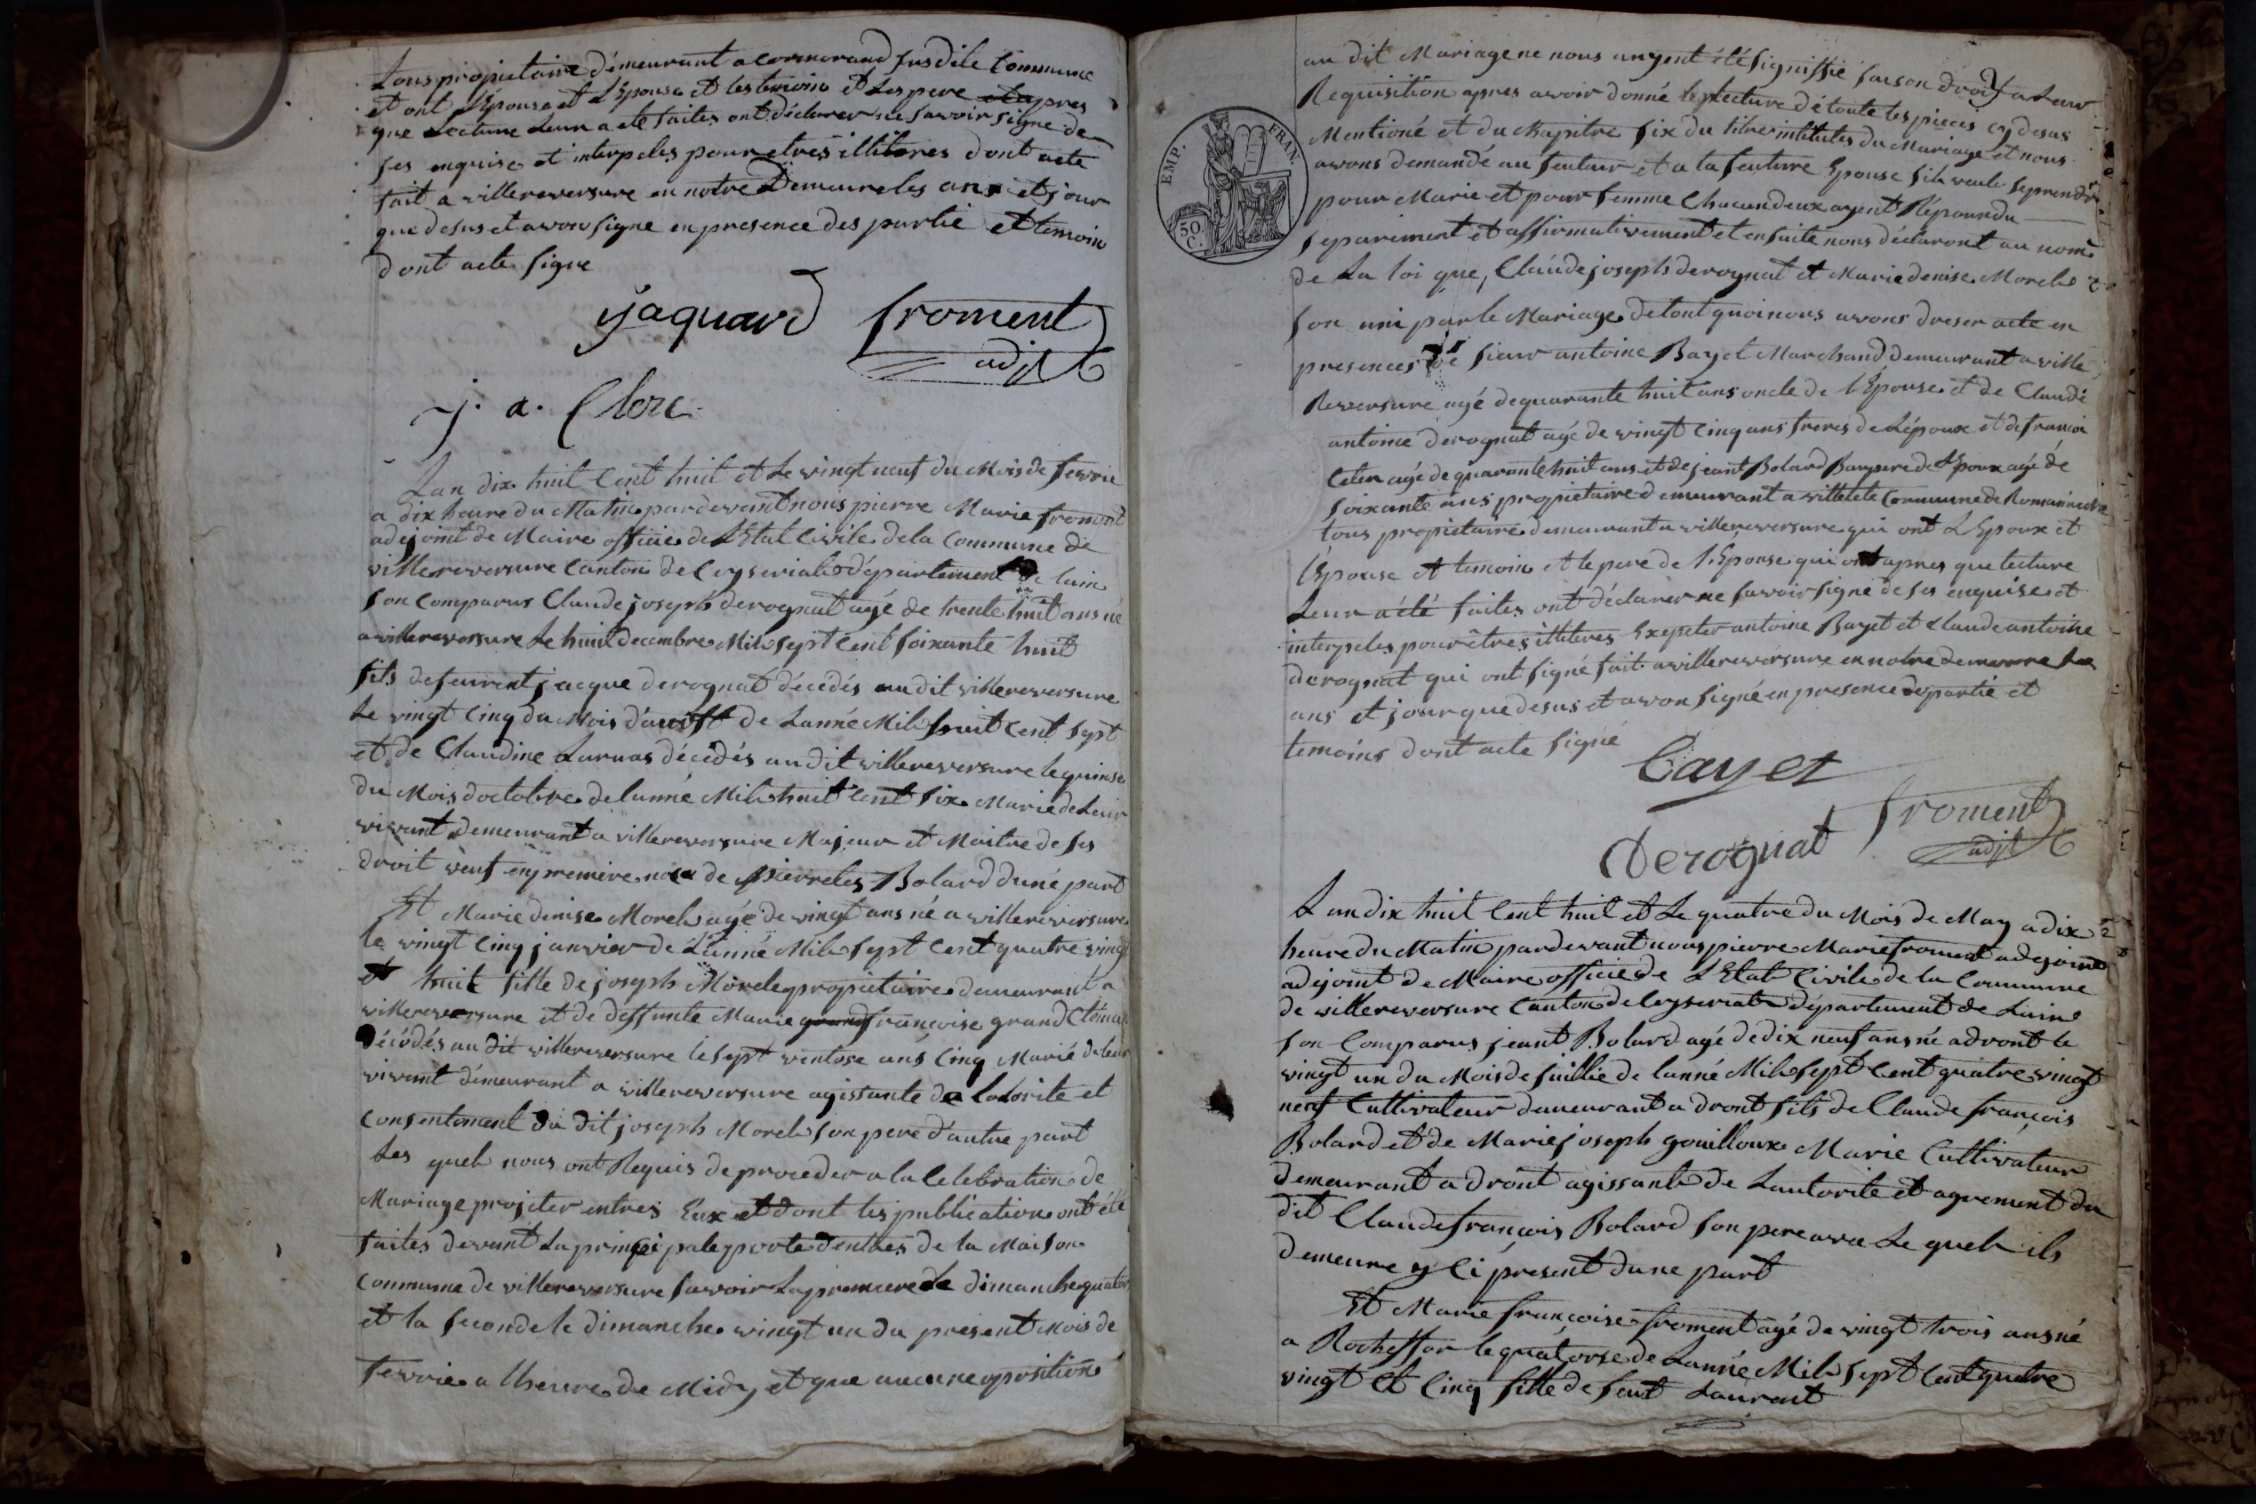 Tous propietaire démeurant a cormorand susdite Commune
et ont L'Epouse et L'Epouse et les temoins et Les pere apres
que Lecture Leur a eté faites ont déclarer ne savoir signe de
ses enquise et interpeles pour etres illiteres dont acte
fait a villereversure en notre Demeure les ans et jour
que desus et avon signe en presence des partie et temoin
dont acte signe
jaquard froment
adjt
j. a. Clerc
Lan dix huit Cent huit et Le vingt neuf du Mois de fevrie
a dix heure du Matin pardevant nous pierre Marie froment
adejoint de Maire officie de L'Etat Civile de la Commune de
villereversure Canton de Ceyseriat département de lain
son Comparus Claude joseph derognat agé de trente huit ans né
a villereversure Le huit decembre Mil sept Cent soixante huit
fils de feu jacque derognat décédés au dit villereversure
Le vingt Cinq du Mois d'aoust de Lanné Mil huit Cent sept
et de Claudine décédés au dit villereversure le quinse
du Mois doctobre de lanné Mil huit Cent six Marie de Leur
vivant demeurant a villereversure Majeur et Maitre de ses
droit veuf en premiere noce de Bolard dune part
Et Marie denise Morel agé de vingt ans né a villereversure
le vingt Cinq janvier de Lanné Mil sept Cent quatre vingt
et huit fille de joseph Morel propietaire demeurant a
villereversure et de deffunte Marie françoise grand Clément
décédés au dit villereversure le sept ventose ans Cinq Marié de leur
vivant démeurant a villereversure agissante de lotorite et
Consentement du dit joseph Morel son pere d'autre part
Les quel nous ont Requis de proceder a la Celebration de
Mariage projeter entres Eux et dont les publication ont été
faites devant La principale porte dentrés de la Maison
Commune de villereversure savoir La premiere Le dimanche quatorse
et la seconde le dimanche vingt un du present Mois de
fevrie a lheure de Midy et que aucune oposition
au dit Mariage ne nous anyent été signiffié faison droit a Leur
Requisition apres avoir donné Lecture de toute les pieces cy desus
Mentioné et du Chapitre six du titre intitules du Mariage et nous
avons demandé au feutur et a la feuture Epouse sil veule seprendre
pour Marie et pour femme Chacun deux ayent Répoundu
separement et affirmativement et ensuite nous déclaront au nom
de La loi que, Claude joseph derognat et Marie denise Morel
son uni par le Mariage de tout quoi nous avons dreser acte en
presences de sieur antoine Bayet Marchand demeurant a ville
Reversure agé de quarante huit ans oncle de l'Epouse et de Claude
antoine derognat agé de vingt Cinq ans freres de Lépoux et de francoi
agé de quarante huit ans et de jeant Bolard Baupere de L'Epoux agé de
soixante ans propietaire demeurant a villette Commune de Romanieche
tous propietaire demeurant a villereversure qui ont L'Epoux et
l'Epouse et temoin et le pere de l'Epouse qui ont apres que lecture
Leur a été faites ont déclarer ne savoir signé de ses enquise et
interpeles pour êtres illiteres Exepeter antoine Bayet et Claude antoine
derognat qui ont signé fait a villereversure en notre demeure Les
ans et jour que desus et avon signé en presence de partie et
temoins dont acte signé
Bayet
froment
adjt
Derognat
EMP. FRAN.
50 C.
Lan dix huit Cent huit et Le quatre du Mois de May a dix
heure du Matin pardevant nous pierre Marie froment adejoint
adejoint de Maire officie de L'Etat Civile de la Commune
de villereversure Canton de Ceyseriat Département de Lain
son Comparus jeant Bolard agé de dix neuf ans né a dront le
vingt un du Mois de juillie de lanné Mil sept Cent quatre vingt
neuf Cultivateur demeurant a dront fils de Claude françois
Bolard et de Marie joseph gouilloux Marie Cultivateur
demeurant a dront agissante de Lautorite et agrement du
dit Claude françois Bolard son pere avec Le quel ils
demeure y Ci présent dune part
Et Marie françoise froment agé de vingt trois ans né
a Rocheffor le quatorse de Lanné Mil sept Cent quatre
vingt et Cinq fille de feut Laurent